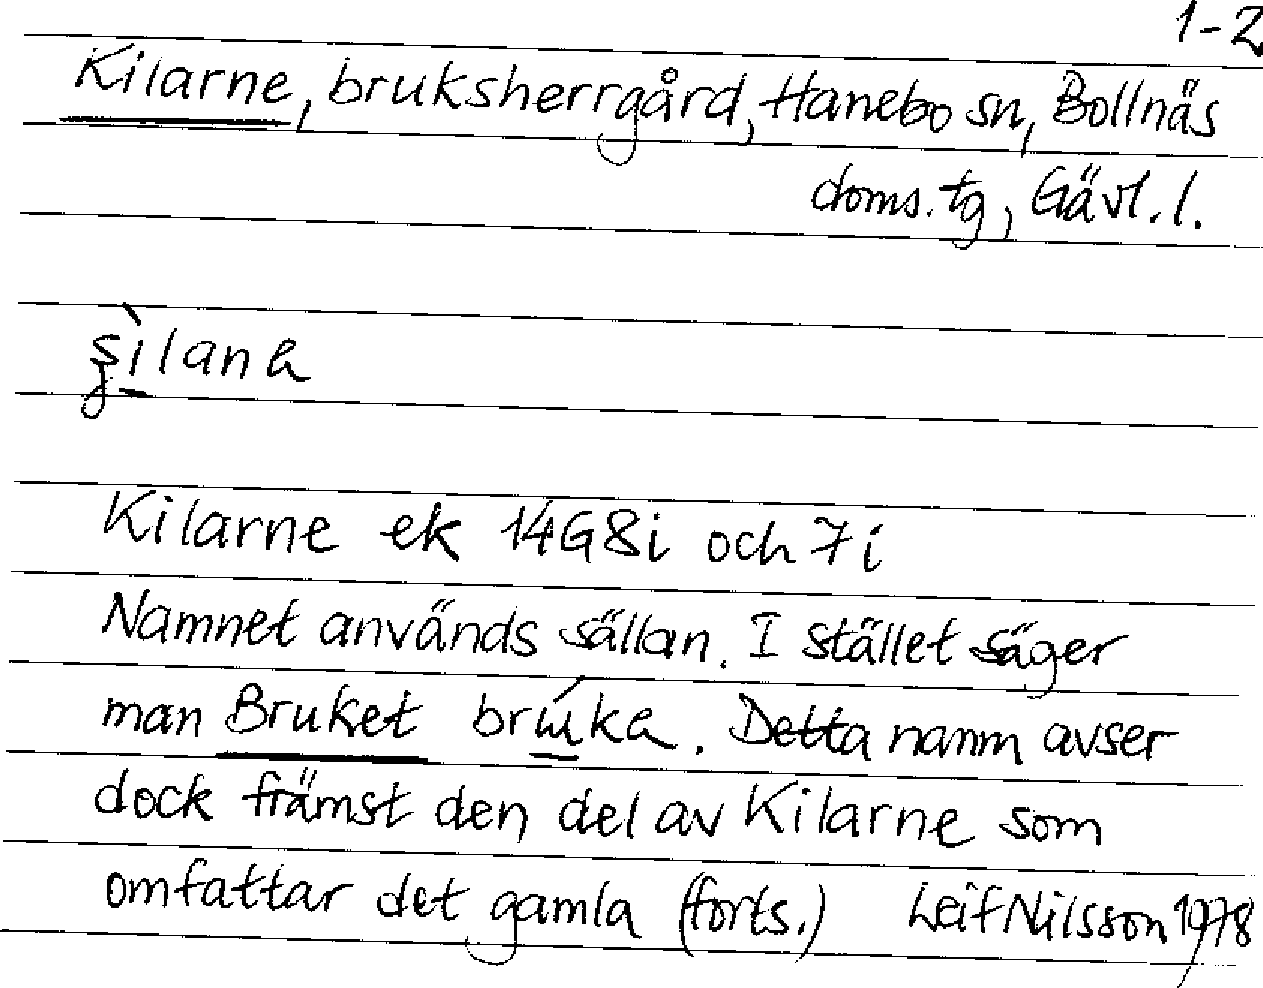 1-2
Kilarne, bruksherrgård, Hanebo sn, Bollnäs
doms. tg, Gävl. l.
Kilarne ek 14G8i och 7i
Namnet används sällan. I stället säger
man Bruket . Detta namn avser
dock främst den del av Kilarne som
omfattar det gamla (forts.) Leif Nilsson 1978